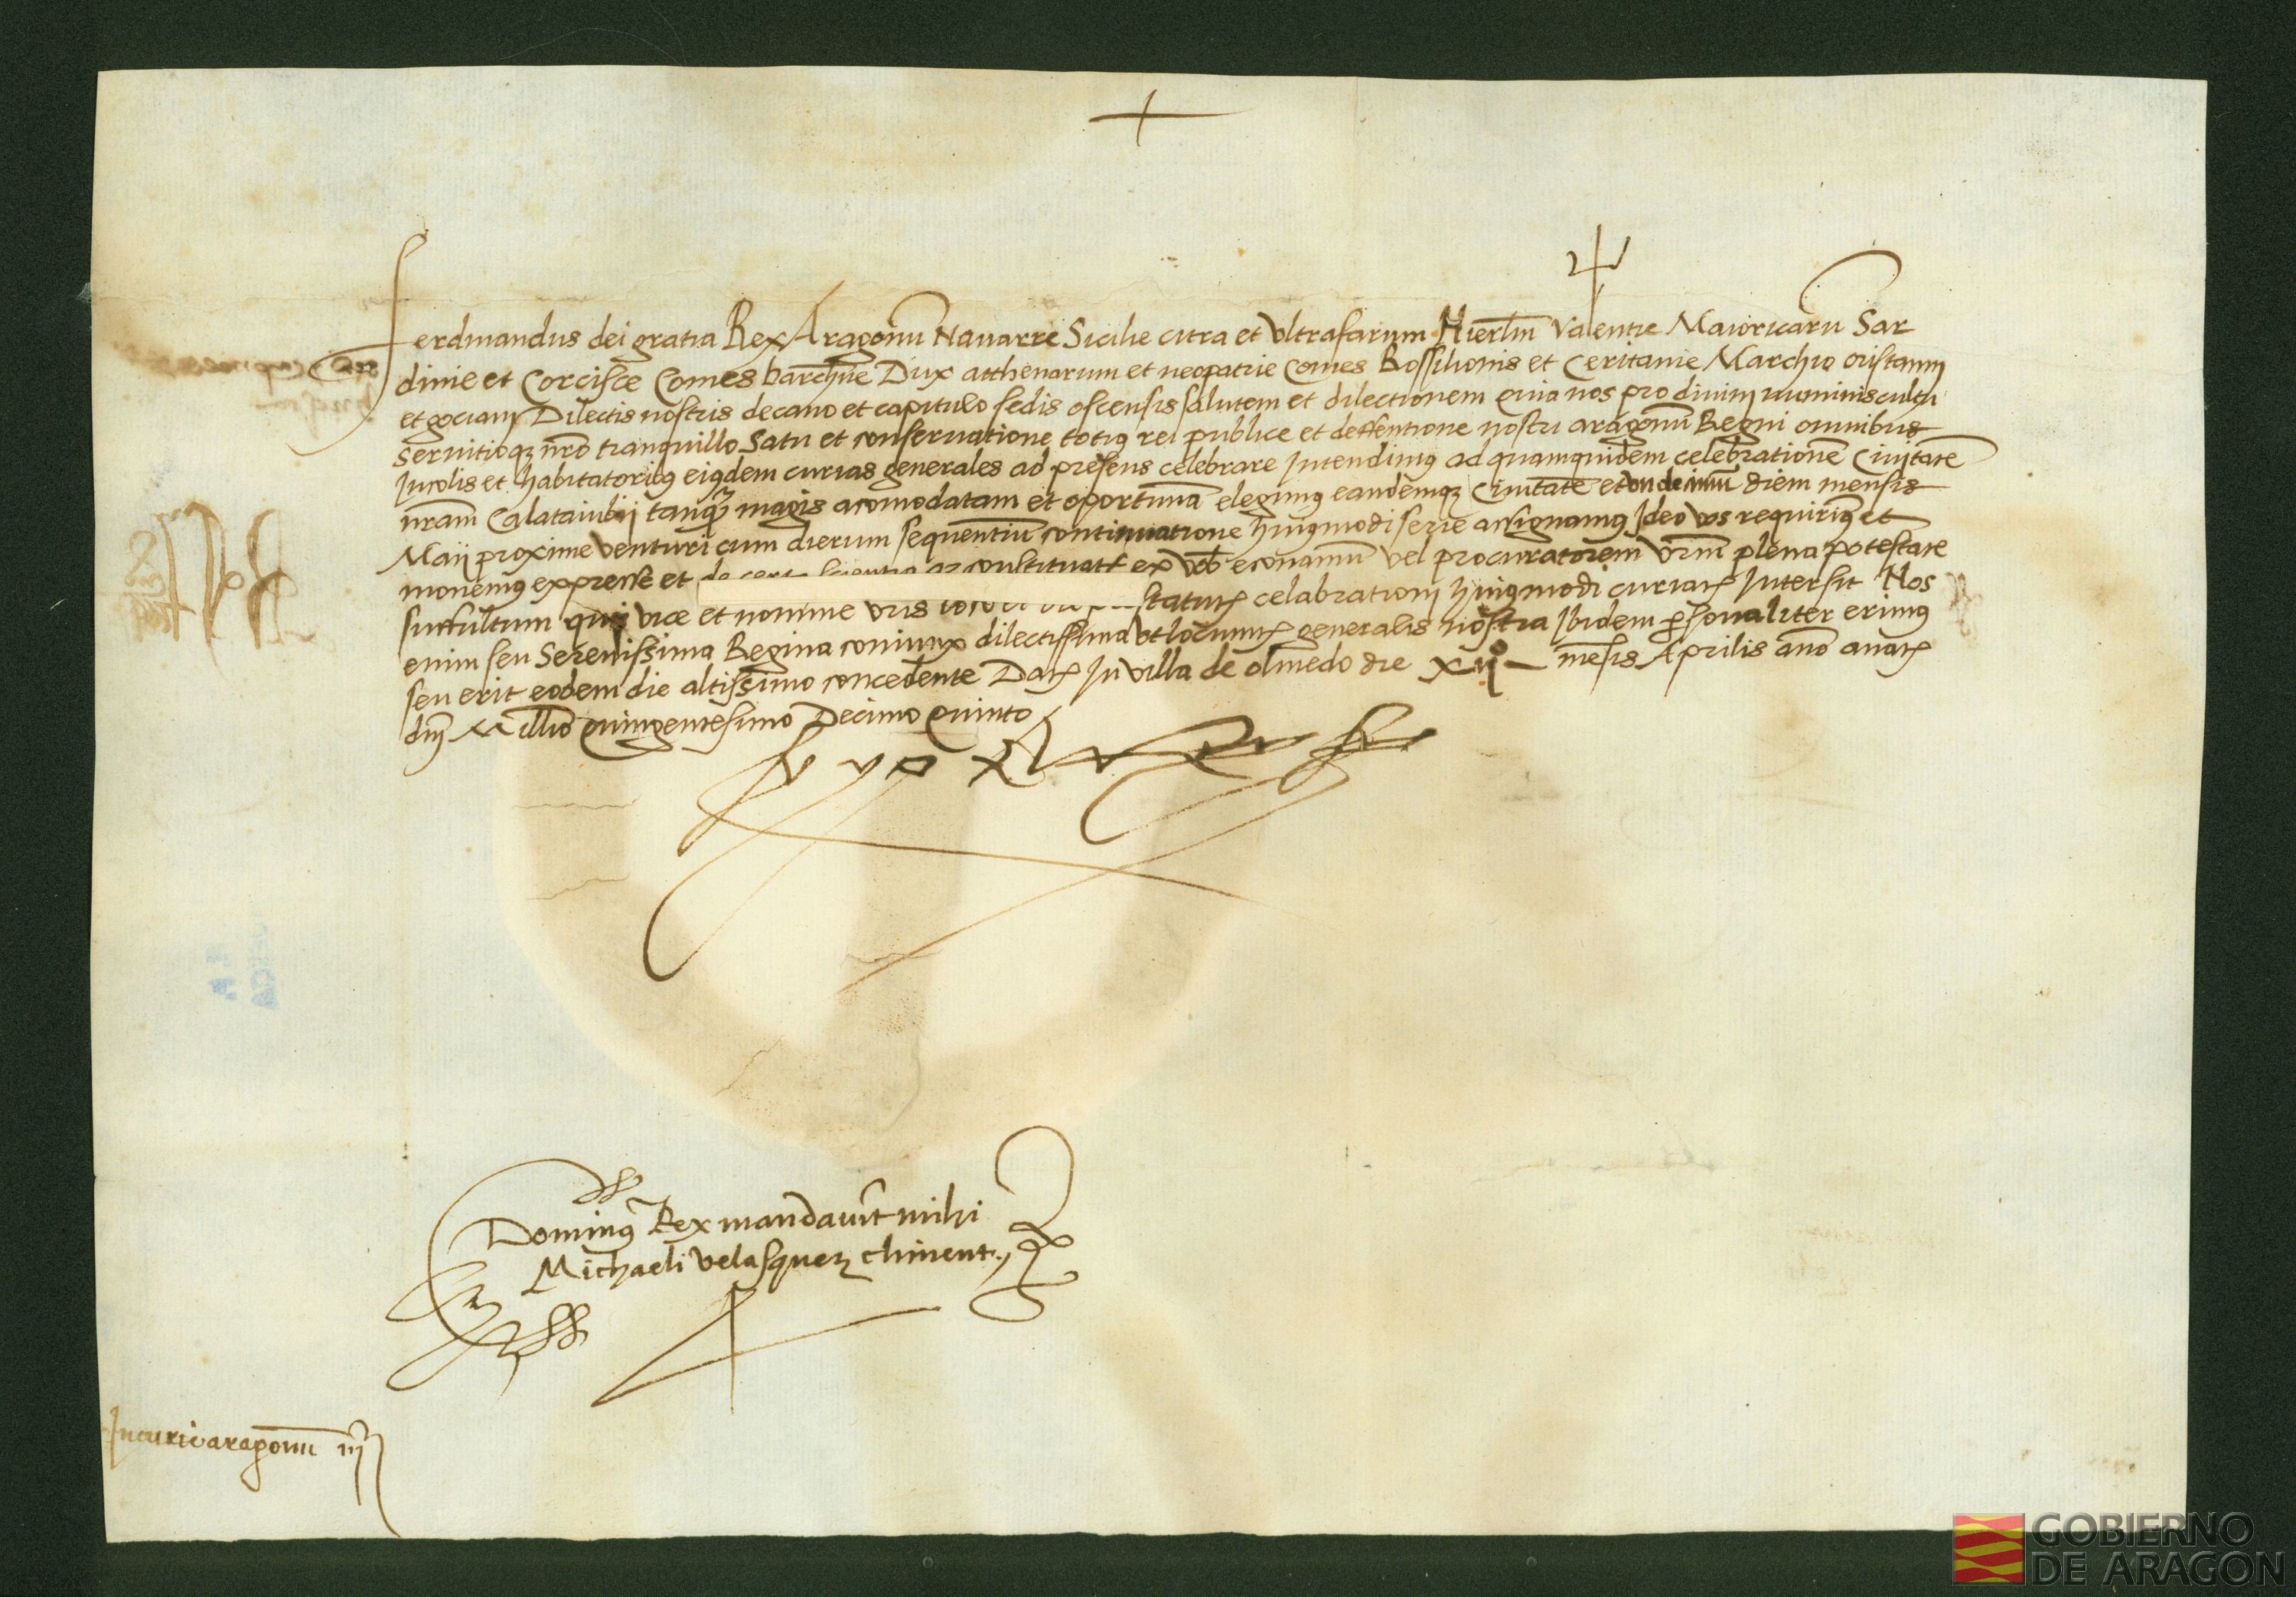 Ferdinandus dei gratia Rex Aragonũ Navarre Sicilie citra et ultra farum Hierl̃m Valentie Maioricarũ Sar
dinie et Corcisce Comes barchñe Dux atthenarum et neopatrie Comes Rossilionis et Ceritanie Marchio oristanij
et gociani Dilectis nostris decano et capitulo sedis oscensis salutem et dilectionem Quia nos pro divinj numinis cultu
servitioqz nr̃o tranquillo Satu et conservatione totiꝰ rei publice et deffentione nostri aragonũ Regni omnibus
Incolis et habitatoribꝰ eiꝰdem curias generales ad presens celebrare Intendimꝰ ad quamquidem celebrationẽ Civitatẽ
nr̃am Calataiubij tanqꝫ magis acomodatam et oportunã elegimꝰ eandemqz Civitatẽ et undecimũ diem mensis
Maij proxime venturi cum dierum sequentiũ continuatione huiꝰmodi serie assignamꝰ Ideo vos requirimꝰ et
monemꝰ expresse et de certa scientia qz constituatis ex vob̃ econamũ vel procuratorem vrm̃ plena potestate
suffultum qui vice et nomine vris̃ statutꝝ celabrationj huiꝰmodi curiarꝝ Intersit Nos
enim seu Serenissima Regina coniunx dilectissima ut locumtꝝ generalis nostra Ibidem ꝑsonaliter erimꝰ
seu erit eodem die altissimo concedente Datꝝ In villa de olmedo die xijº mesĩs Aprilis anõ a natꝝ
dñj Millº Quingentesimo Decimo Quinto
Yo el Rey
Dominꝰ Rex mandavit mihi
Michaeli velasquez climent.,
In curie aragonum iij
GOBIERNO
DE ARAGON